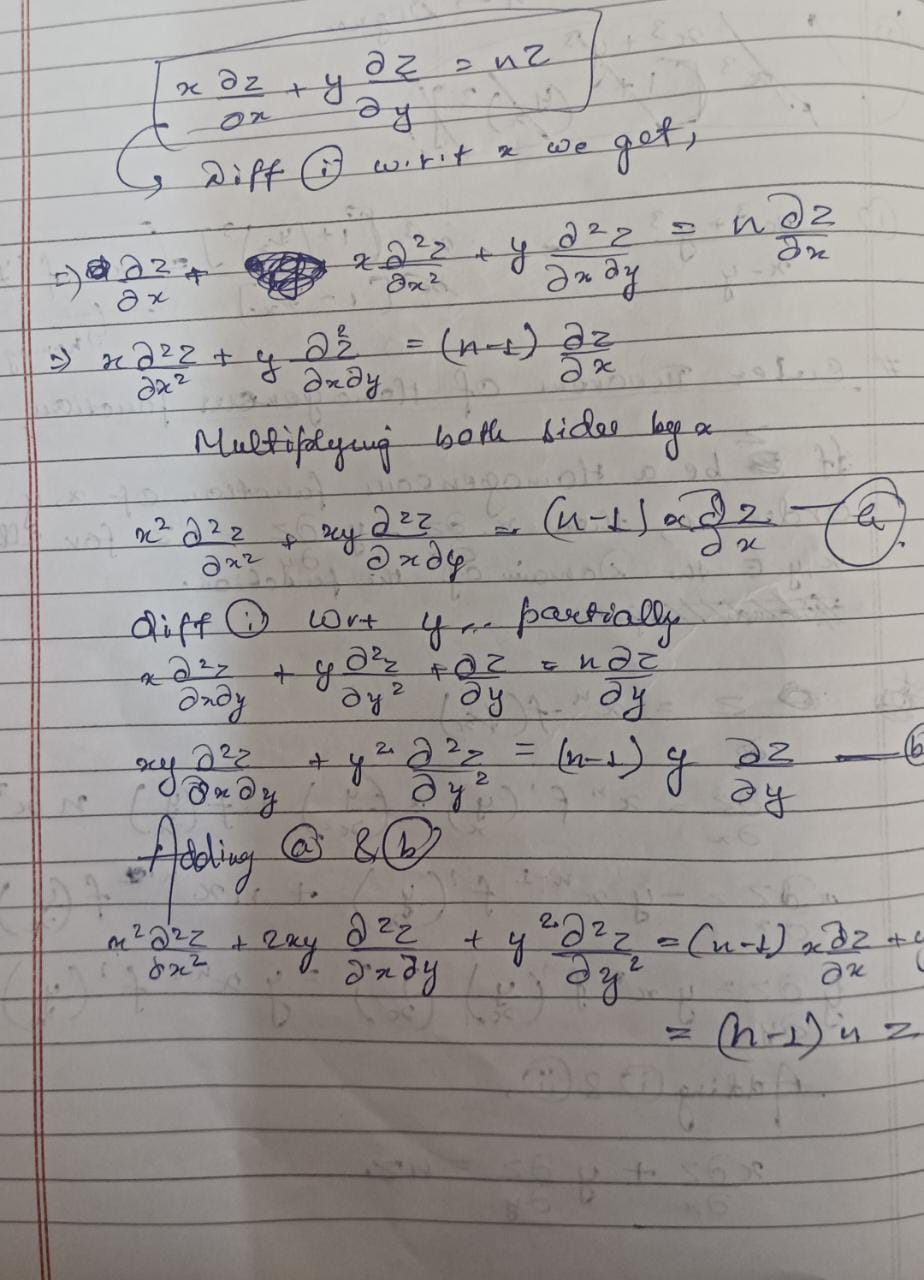 x ∂z/∂x + y ∂z/∂y = nz
↳ Diff (i) w.r.t x we get,
⇒ ∂z/∂x + x ∂²z/∂x² + y ∂²z/∂x∂y = n ∂z/∂x
⇒ x ∂²z/∂x² + y ∂²z/∂x∂y = (n-1) ∂z/∂x
Multiplying both sides by x
x² ∂²z/∂x² + xy ∂²z/∂x∂y = (n-1) x ∂z/∂x — (a)
diff (i) wrt y partially
x ∂²z/∂x∂y + y ∂²z/∂y² + ∂z/∂y = n ∂z/∂y
xy ∂²z/∂x∂y + y² ∂²z/∂y² = (n-1) y ∂z/∂y — (b
Adding (a) & (b)
x² ∂²z/∂x² + 2xy ∂²z/∂x∂y + y² ∂²z/∂y² = (n-1) x ∂z/∂x + y
= (n-1) n z